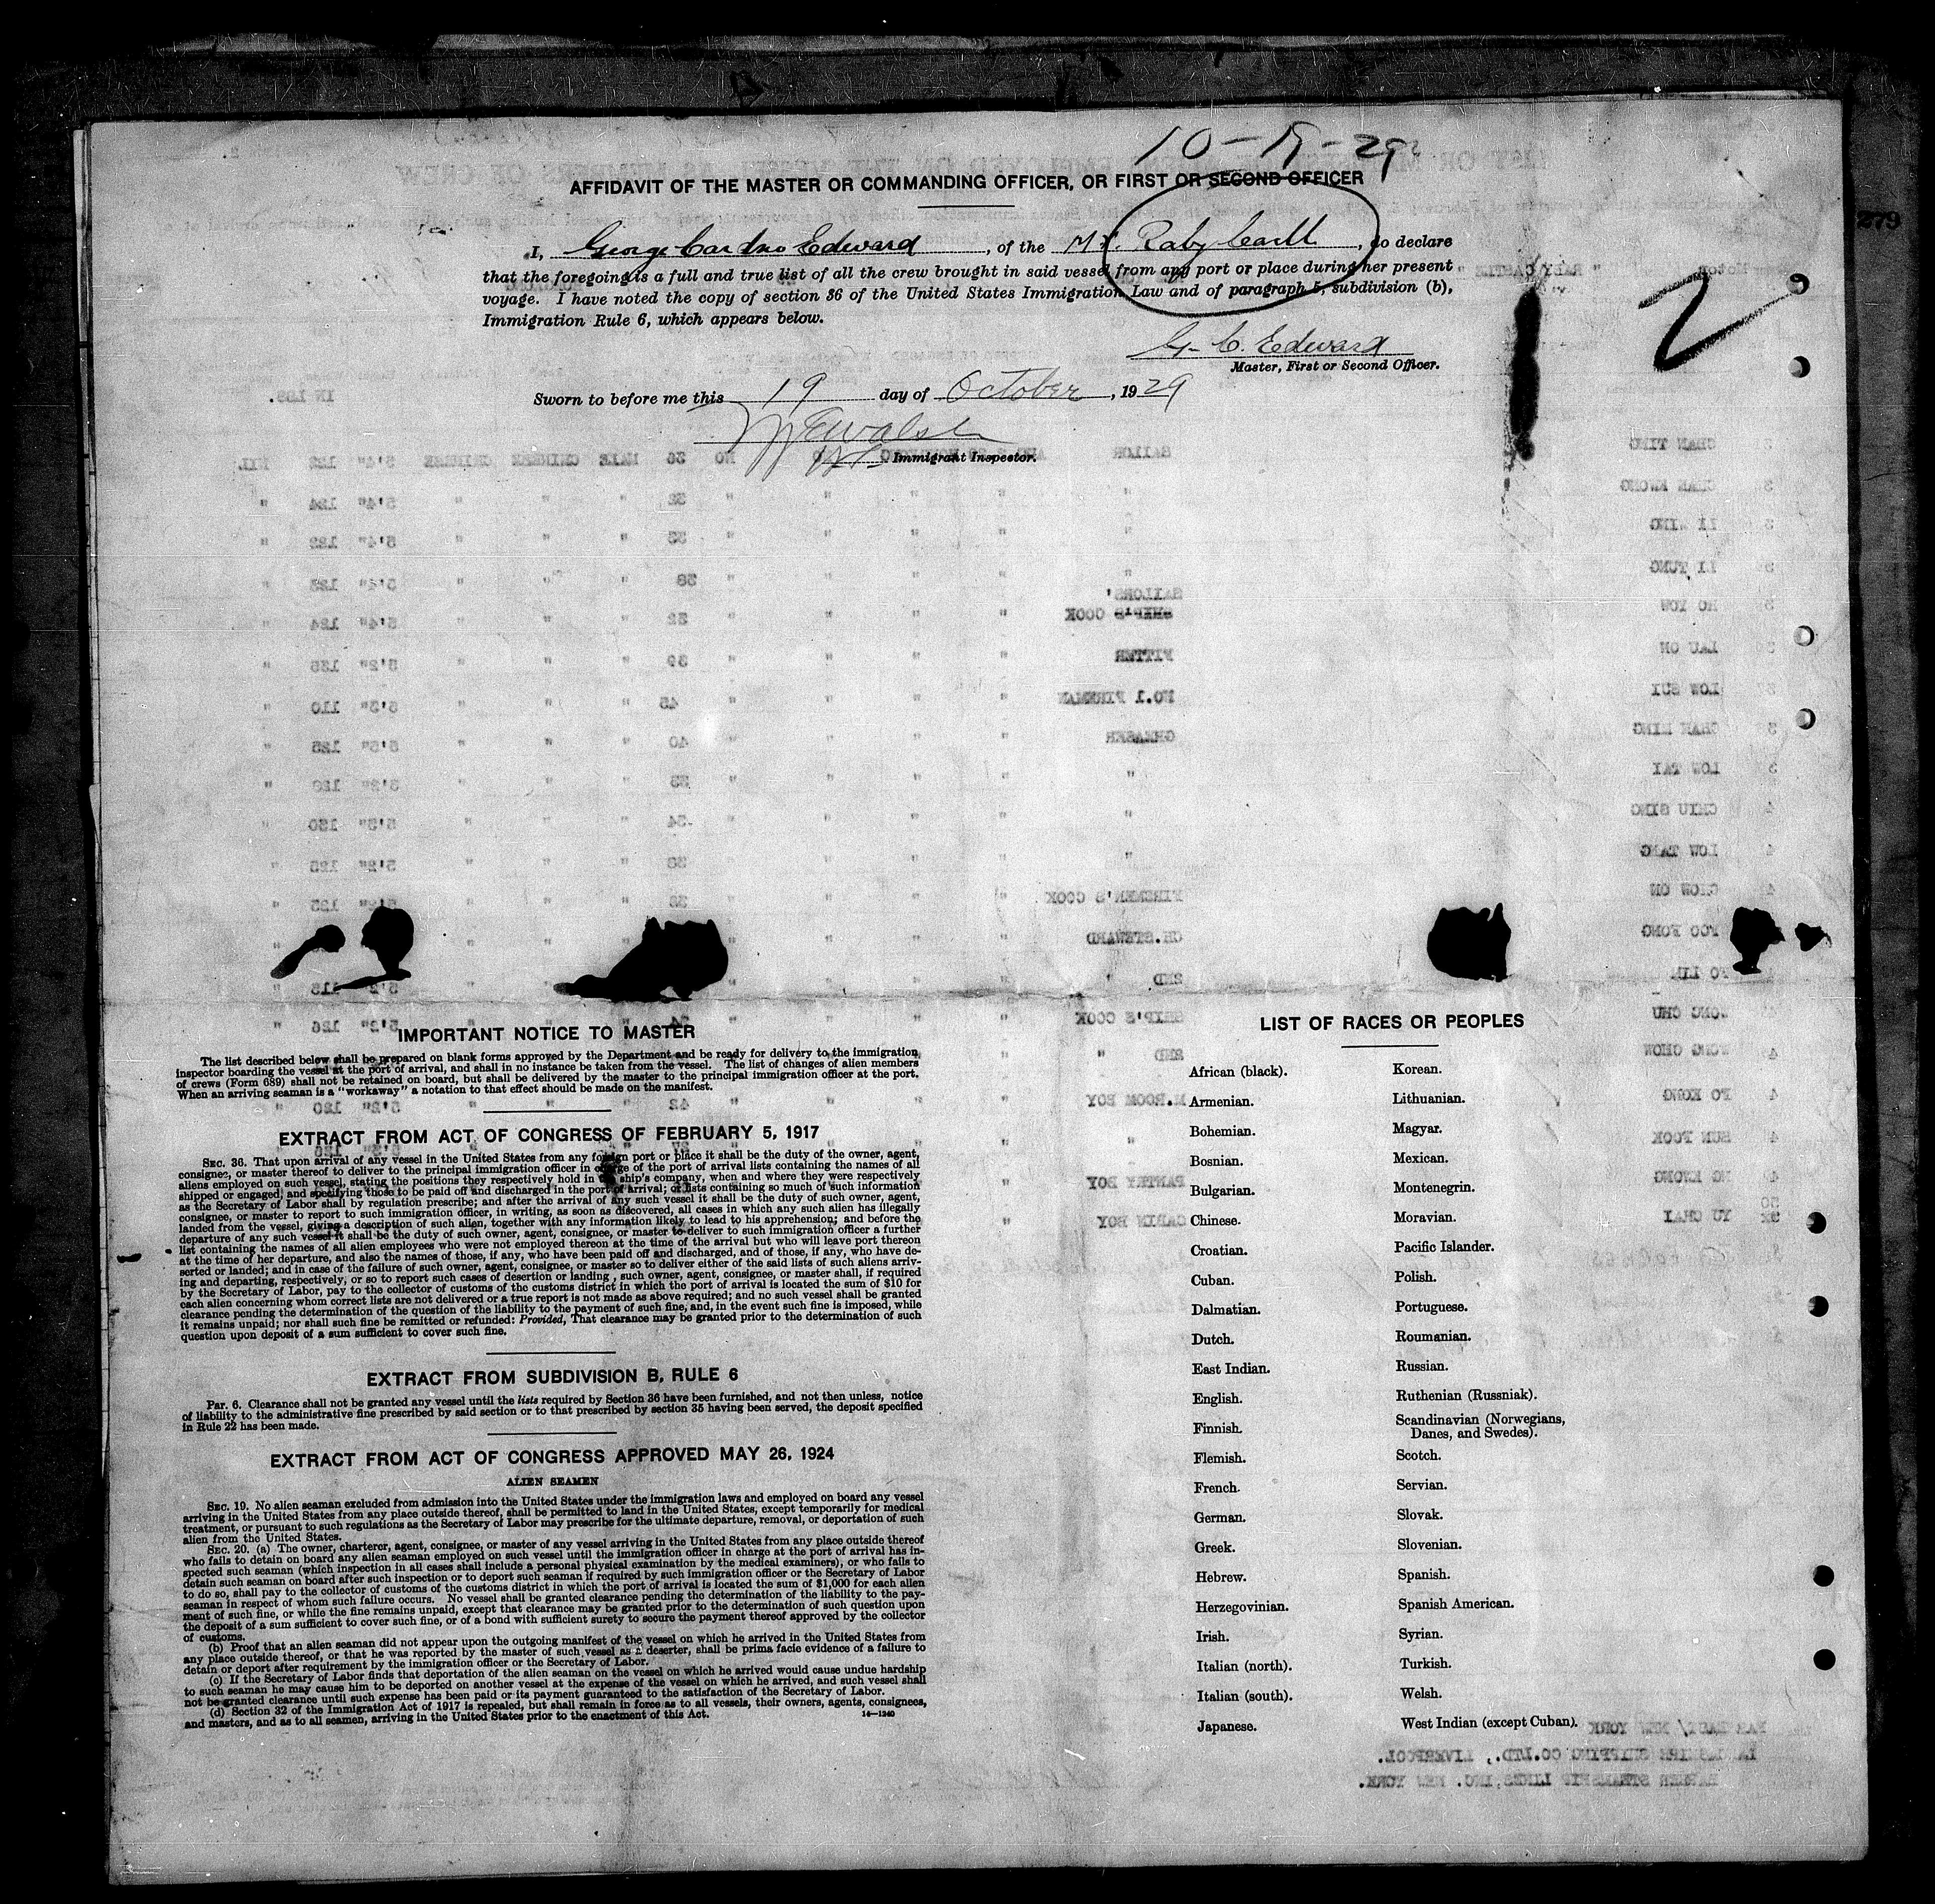 10-19-29
AFFIDAVIT OF THE MASTER OR COMMANDING OFFICER, OR FIRST OR SECOND OFFICER
279
I, George Edward, of the M.V. Raby Castle, do declare
that the foregoing is a full and true list of all the crew brought in said vessel from any port or place during her present
voyage. I have noted the copy of section 36 of the United States Immigration Law and of paragraph 5, subdivision (b),
Immigration Rule 6, which appears below.
2
G. C. Edward
Master, First or Second Officer.
Sworn to before me this 19 day of October, 1929
Immigrant Inspector.
IMPORTANT NOTICE TO MASTER
The list described below shall be prepared on blank forms approved by the Department and be ready for delivery to the immigration
inspector boarding the vessel at the port of arrival, and shall in no instance be taken from the vessel. The list of changes of alien members
of crews (Form 689) shall not be retained on board, but shall be delivered by the master to the principal immigration officer at the port.
When an arriving seaman is a "workaway" a notation to that effect should be made on the manifest.
EXTRACT FROM ACT OF CONGRESS OF FEBRUARY 5, 1917
SEC. 36. That upon arrival of any vessel in the United States from any foreign port or place it shall be the duty of the owner, agent,
consignee, or master thereof to deliver to the principal immigration officer in charge of the port of arrival lists containing the names of all
aliens employed on such vessel, stating the positions they respectively hold in the ship's company, when and where they were respectively
shipped or engaged, and specifying those to be paid off and discharged in the port of arrival; or lists containing so much of such information
as the Secretary of Labor shall by regulation prescribe; and after the arrival of any such vessel it shall be the duty of such owner, agent,
consignee, or master to report to such immigration officer, in writing, as soon as discovered, all cases in which any such alien has illegally
landed from the vessel, giving a description of such alien, together with any information likely to lead to his apprehension; and before the
departure of any such vessel it shall be the duty of such owner, agent, consignee, or master to deliver to such immigration officer a further
list containing the names of all alien employees who were not employed thereon at the time of the arrival but who will leave port thereon
at the time of her departure, and also the names of those, if any, who have been paid off and discharged, and of those, if any, who have de-
serted or landed; and in case of the failure of such owner, agent, consignee, or master so to deliver either of the said lists of such aliens arriv-
ing and departing, respectively, or so to report such cases of desertion or landing, such owner, agent, consignee, or master shall, if required
by the Secretary of Labor, pay to the collector of customs of the customs district in which the port of arrival is located the sum of $10 for
each alien concerning whom correct lists are not delivered or a true report is not made as above required; and no such vessel shall be granted
clearance pending the determination of the question of the liability to the payment of such fine, and, in the event such fine is imposed, while
it remains unpaid; nor shall such fine be remitted or refunded: Provided, That clearance may be granted prior to the determination of such
question upon deposit of a sum sufficient to cover such fine.
EXTRACT FROM SUBDIVISION B, RULE 6
Par. 6. Clearance shall not be granted any vessel until the lists required by Section 36 have been furnished, and not then unless, notice
of liability to the administrative fine prescribed by said section or to that prescribed by section 35 having been served, the deposit specified
in Rule 22 has been made.
EXTRACT FROM ACT OF CONGRESS APPROVED MAY 26, 1924
ALIEN SEAMEN
SEC. 19. No alien seaman excluded from admission into the United States under the immigration laws and employed on board any vessel
arriving in the United States from any place outside thereof, shall be permitted to land in the United States, except temporarily for medical
treatment, or pursuant to such regulations as the Secretary of Labor may prescribe for the ultimate departure, removal, or deportation of such
alien from the United States.
SEC. 20. (a) The owner, charterer, agent, consignee, or master of any vessel arriving in the United States from any place outside thereof
who fails to detain on board any alien seaman employed on such vessel until the immigration officer in charge at the port of arrival has in-
spected such seaman (which inspection in all cases shall include a personal physical examination by the medical examiners), or who fails to
detain such seaman on board after such inspection or to deport such seaman if required by such immigration officer or the Secretary of Labor
to do so, shall pay to the collector of customs of the customs district in which the port of arrival is located the sum of $1,000 for each alien
seaman in respect of whom such failure occurs. No vessel shall be granted clearance pending the determination of the liability to the pay-
ment of such fine, or while the fine remains unpaid, except that clearance may be granted prior to the determination of such question upon
the deposit of a sum sufficient to cover such fine, or of a bond with sufficient surety to secure the payment thereof approved by the collector
of customs.
(b) Proof that an alien seaman did not appear upon the outgoing manifest of the vessel on which he arrived in the United States from
any place outside thereof, or that he was reported by the master of such vessel as a deserter, shall be prima facie evidence of a failure to
detain or deport after requirement by the immigration officer or the Secretary of Labor.
(c) If the Secretary of Labor finds that deportation of the alien seaman on the vessel on which he arrived would cause undue hardship
to such seaman he may cause him to be deported on another vessel at the expense of the vessel on which he arrived, and such vessel shall
not be granted clearance until such expense has been paid or its payment guaranteed to the satisfaction of the Secretary of Labor.
(d) Section 32 of the Immigration Act of 1917 is repealed, but shall remain in force as to all vessels, their owners, agents, consignees,
and masters, and as to all seamen, arriving in the United States prior to the enactment of this Act.
14—1240
LIST OF RACES OR PEOPLES
African (black).
Armenian.
Bohemian.
Bosnian.
Bulgarian.
Chinese.
Croatian.
Cuban.
Dalmatian.
Dutch.
East Indian.
English.
Finnish.
Flemish.
French.
German.
Greek.
Hebrew.
Herzegovinian.
Irish.
Italian (north).
Italian (south).
Japanese.
Korean.
Lithuanian.
Magyar.
Mexican.
Montenegrin.
Moravian.
Pacific Islander.
Polish.
Portuguese.
Roumanian.
Russian.
Ruthenian (Russniak).
Scandinavian (Norwegians,
Danes, and Swedes).
Scotch.
Servian.
Slovak.
Slovenian.
Spanish.
Spanish American.
Syrian.
Turkish.
Welsh.
West Indian (except Cuban).